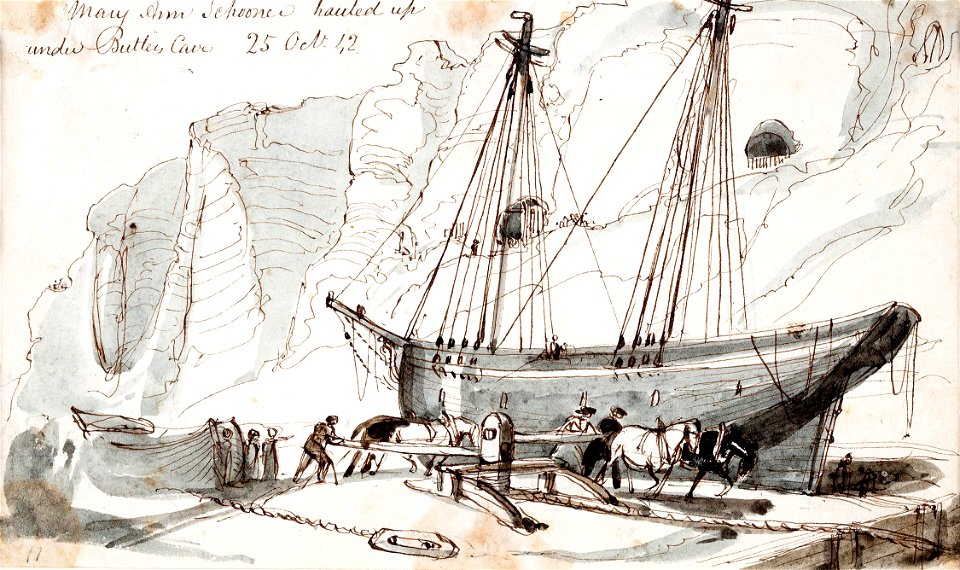 Mary Ann Schooner hauled up
under Butlers Cave 25 Oct. 42
11